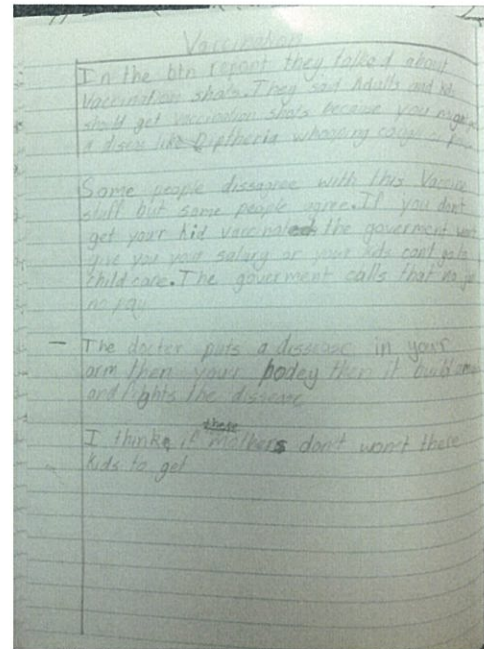 Vaccination
In the btn repont they talked about
Vaccination shots. They said Adults and kids
should get vaccination shots because you
a diseas like Diptheria whooping
Some people dissagree with this Vaccine
staff but some people agree. If you don't
get your kid vaccinated the goverment wont
give you your salary or your kids cant goto
child care. The goverment calls that no
no pay
— The docter puts a dissease in your
arm then your bodey then it build
and fights the dissease
I think if mothers don't won't there
kids to get